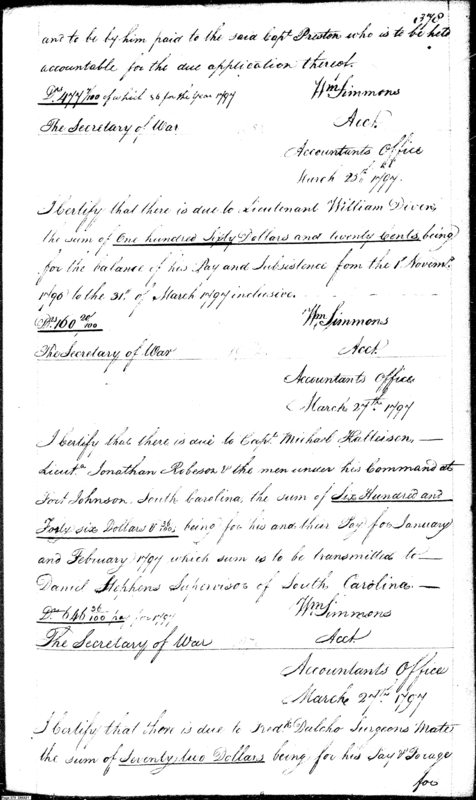 378
and to be by him paid to the said Capt. Preston who is to be held
accountable for the due application thereof.
Drs. 477 /100 of which is for the Year 1797
Wm. Simmons
The Secretary of War
Acct.
Accountants Office
March 25th 1797.
I Certify that there is due to Lieutenant William Diven,
the sum of One hundred Sixty Dollars and twenty Cents, being
for the balance of his Pay and Subsistence from the 1st. Novemr.
1796 to the 31st. of March 1797 inclusive.
Drs. 160 20/100
Wm. Simmons
The Secretary of War
Acct.
Accountants Office
March 27th. 1797
I Certify that there is due to Capt. Michael Kalteisen, —
Lieutt. Jonathan Robeson & the men under his Command at
Fort Johnson South Carolina, the sum of Six Hundred and
Forty six Dollars & 36/100, being for his and their Pay for January
and February 1797 which sum is to be transmitted to —
Daniel Stephens Supervisor of South Carolina —
Drs. 646 36/100 pay for 1797
Wm. Simmons
The Secretary of War
Acct.
Accountants Office
March 27th. 1797
I Certify that there is due to Fredk. Dalcho Surgeons Mate
the sum of Seventy two Dollars being for his Pay & Forage
for